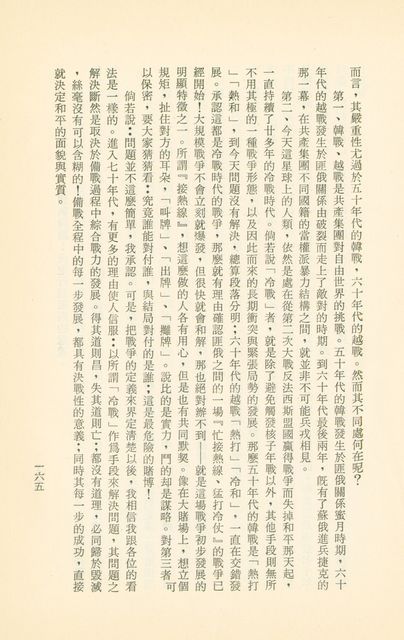 而言，其嚴重性尤過於五十年代的韓戰，六十年代的越戰。然而其不同處何在呢？
第一、韓戰、越戰是共產集團對自由世界的挑戰。五十年代的韓戰發生於匪俄關係蜜月時期，六十
年代的越戰發生於匪俄關係由破裂而走上了敵對的時期。到六十年代最後兩年，既有了蘇俄進兵捷克的
那一幕，在共產集團不同國籍的當權派暴力結構之間，就並非不可能兵戎相見。
第二、今天這星球上的人類，依然是處在從第二次大戰反法西斯盟國贏得戰爭而失掉和平那天起，
一直持續了廿多年的冷戰時代。倘若說「冷戰」者，就是除了避免觸發核子年戰以外，其他手段則無所
不用其極的一種戰爭形態，以及因此而來的長期衝突與緊張局勢的發展。那麼五十年代的韓戰是「熱打
」「熱和」，到今天問題沒有解決，總算段落分明：六十年代的越戰「熱打」「冷和」，一直在交錯發
展。承認這都是冷戰時代的戰爭，那麼，就有理由確認匪俄之間的一場『忙接熱線、猛打冷仗』的戰爭已
經開始！大規模戰爭不會立刻就爆發，但很快就會和解，那也絕對辦不到——就是這場戰爭初步發展的
明顯特徵之一。所謂『接熱線』，想這麼做的人各有用心，但是也有共同默契。像在大賭場上，想立個
規矩，扯住對方的耳朵，「叫牌」、「出牌」、「攤牌」。說比的是實力，鬥的却是謀略。對第三者可
以保密，要大家猜猜看：究竟誰能對付誰，與結局對付的是誰；這是最危險的賭博！
倘若說：問題並不這麼簡單，我承認。可是，把戰爭的定義來界定清楚以後，我相信我跟各位的看
法是一樣的。進入七十年代，有更多的理由使人信服：以所謂「冷戰」作爲手段來解決問題，其問題之
解決斷然是取決於備戰過程中綜合戰力的發展。得其道則昌，失其道則亡：都沒有道理，必同歸於毀滅
，絲毫沒有可以含糊的！備戰全程中的每一步發展，都具有決戰性的意義；同時其每一步的成功，直接
就決定和平的面貌與實質。
一六五